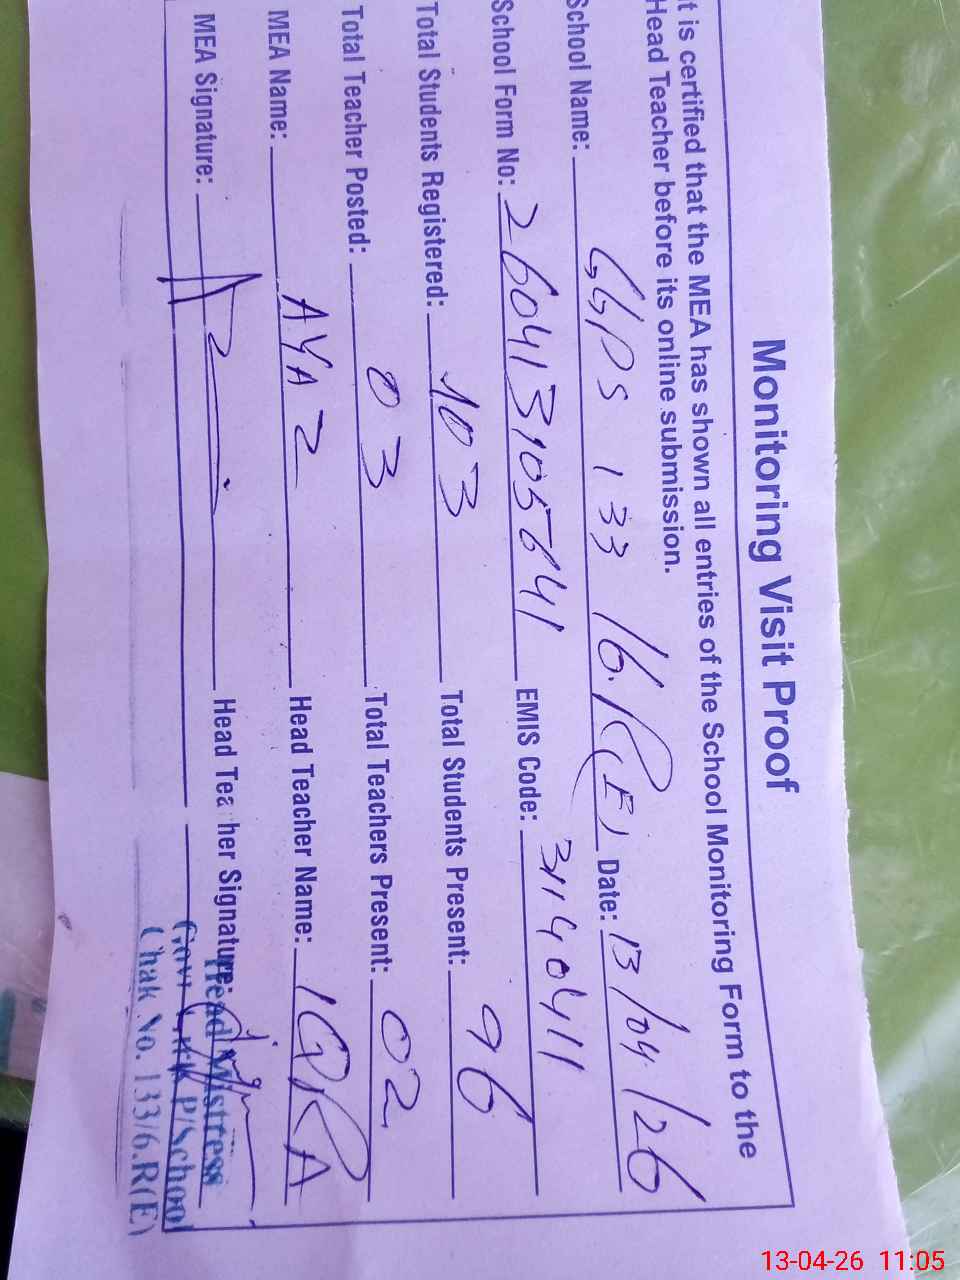 Monitoring Visit Proof
It is certified that the MEA has shown all entries of the School Monitoring Form to the
Head Teacher before its online submission.
School Name: GGPS 133/6.R(E) Date: 13/04/26
School Form No: 2604131056411 EMIS Code: 31140411
Total Students Registered: 103 Total Students Present: 96
Total Teacher Posted: 03 Total Teachers Present: 02
MEA Name: AYAZ Head Teacher Name: IQRA
MEA Signature: Head Teacher Signature:
Head Mistress
Govt Girls P/School
Chak No. 133/6.R(E)
13-04-26 11:05